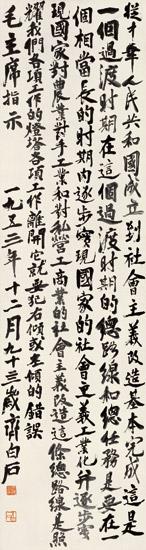 從中華人民共和國成立到社會主義改造基本完成這是
一個過渡时期在這個過渡时期的總路線和總任務是要在一
個相當長的时期內逐步實現國家的社會主義工業化并逐步實
現國家對農業對手工業和對私營工商業的社會主義改造這條總路線是照
耀我們各項工作的燈塔各項工作離開它就要犯右傾或左傾的錯誤
毛主席指示 一九五三年十二月九十三歲齊白石